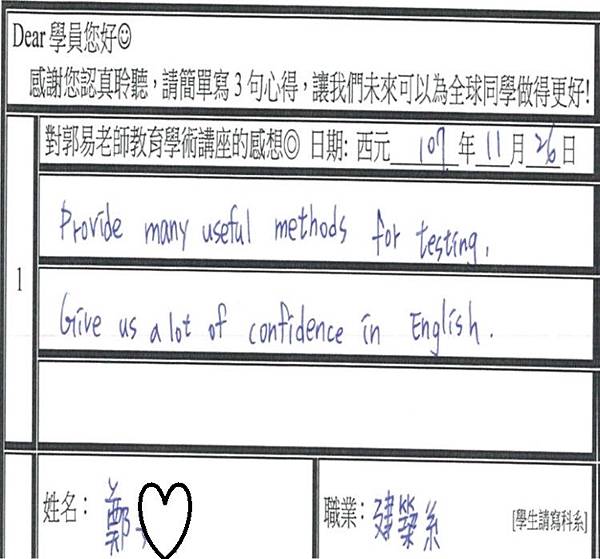 Dear 學員您好☺
感謝您認真聆聽，請簡單寫 3 句心得，讓我們未來可以為全球同學做得更好!
對郭易老師教育學術講座的感想◎ 日期: 西元 107 年 11 月 26 日
1
Provide many useful methods for testing.
Give us a lot of confidence in English.
姓名： 鄭
職業: 建築系 [學生請寫科系]